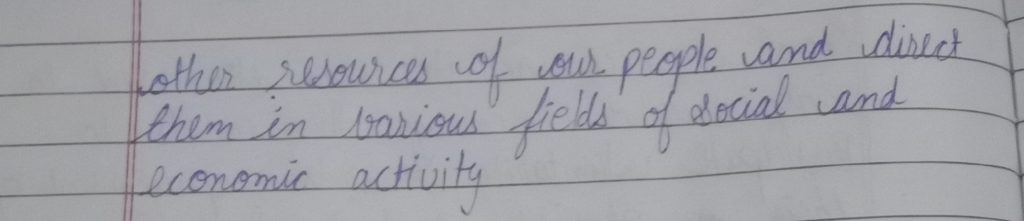 other resources of our people and direct
them in various fields of social and
economic activity